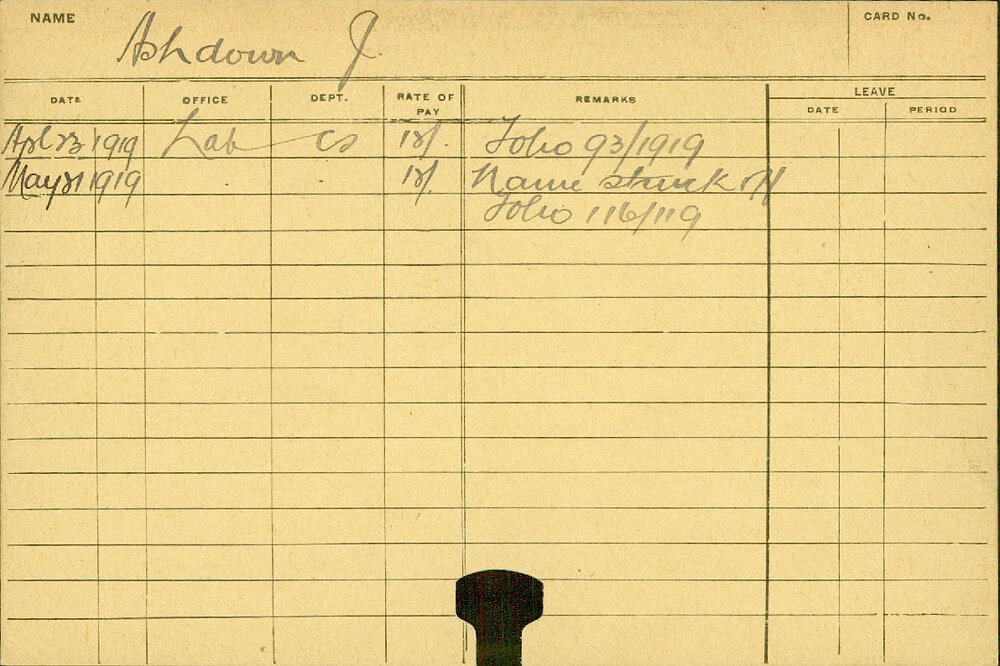 NAME Ashdown J CARD No.
DATE OFFICE DEPT. RATE OF PAY REMARKS LEAVE
DATE PERIOD
Apl 23 1919 Lab CS 12/. Folio 93/1919
May 21 1919 . . 12/. Name struck off
Folio 116/119